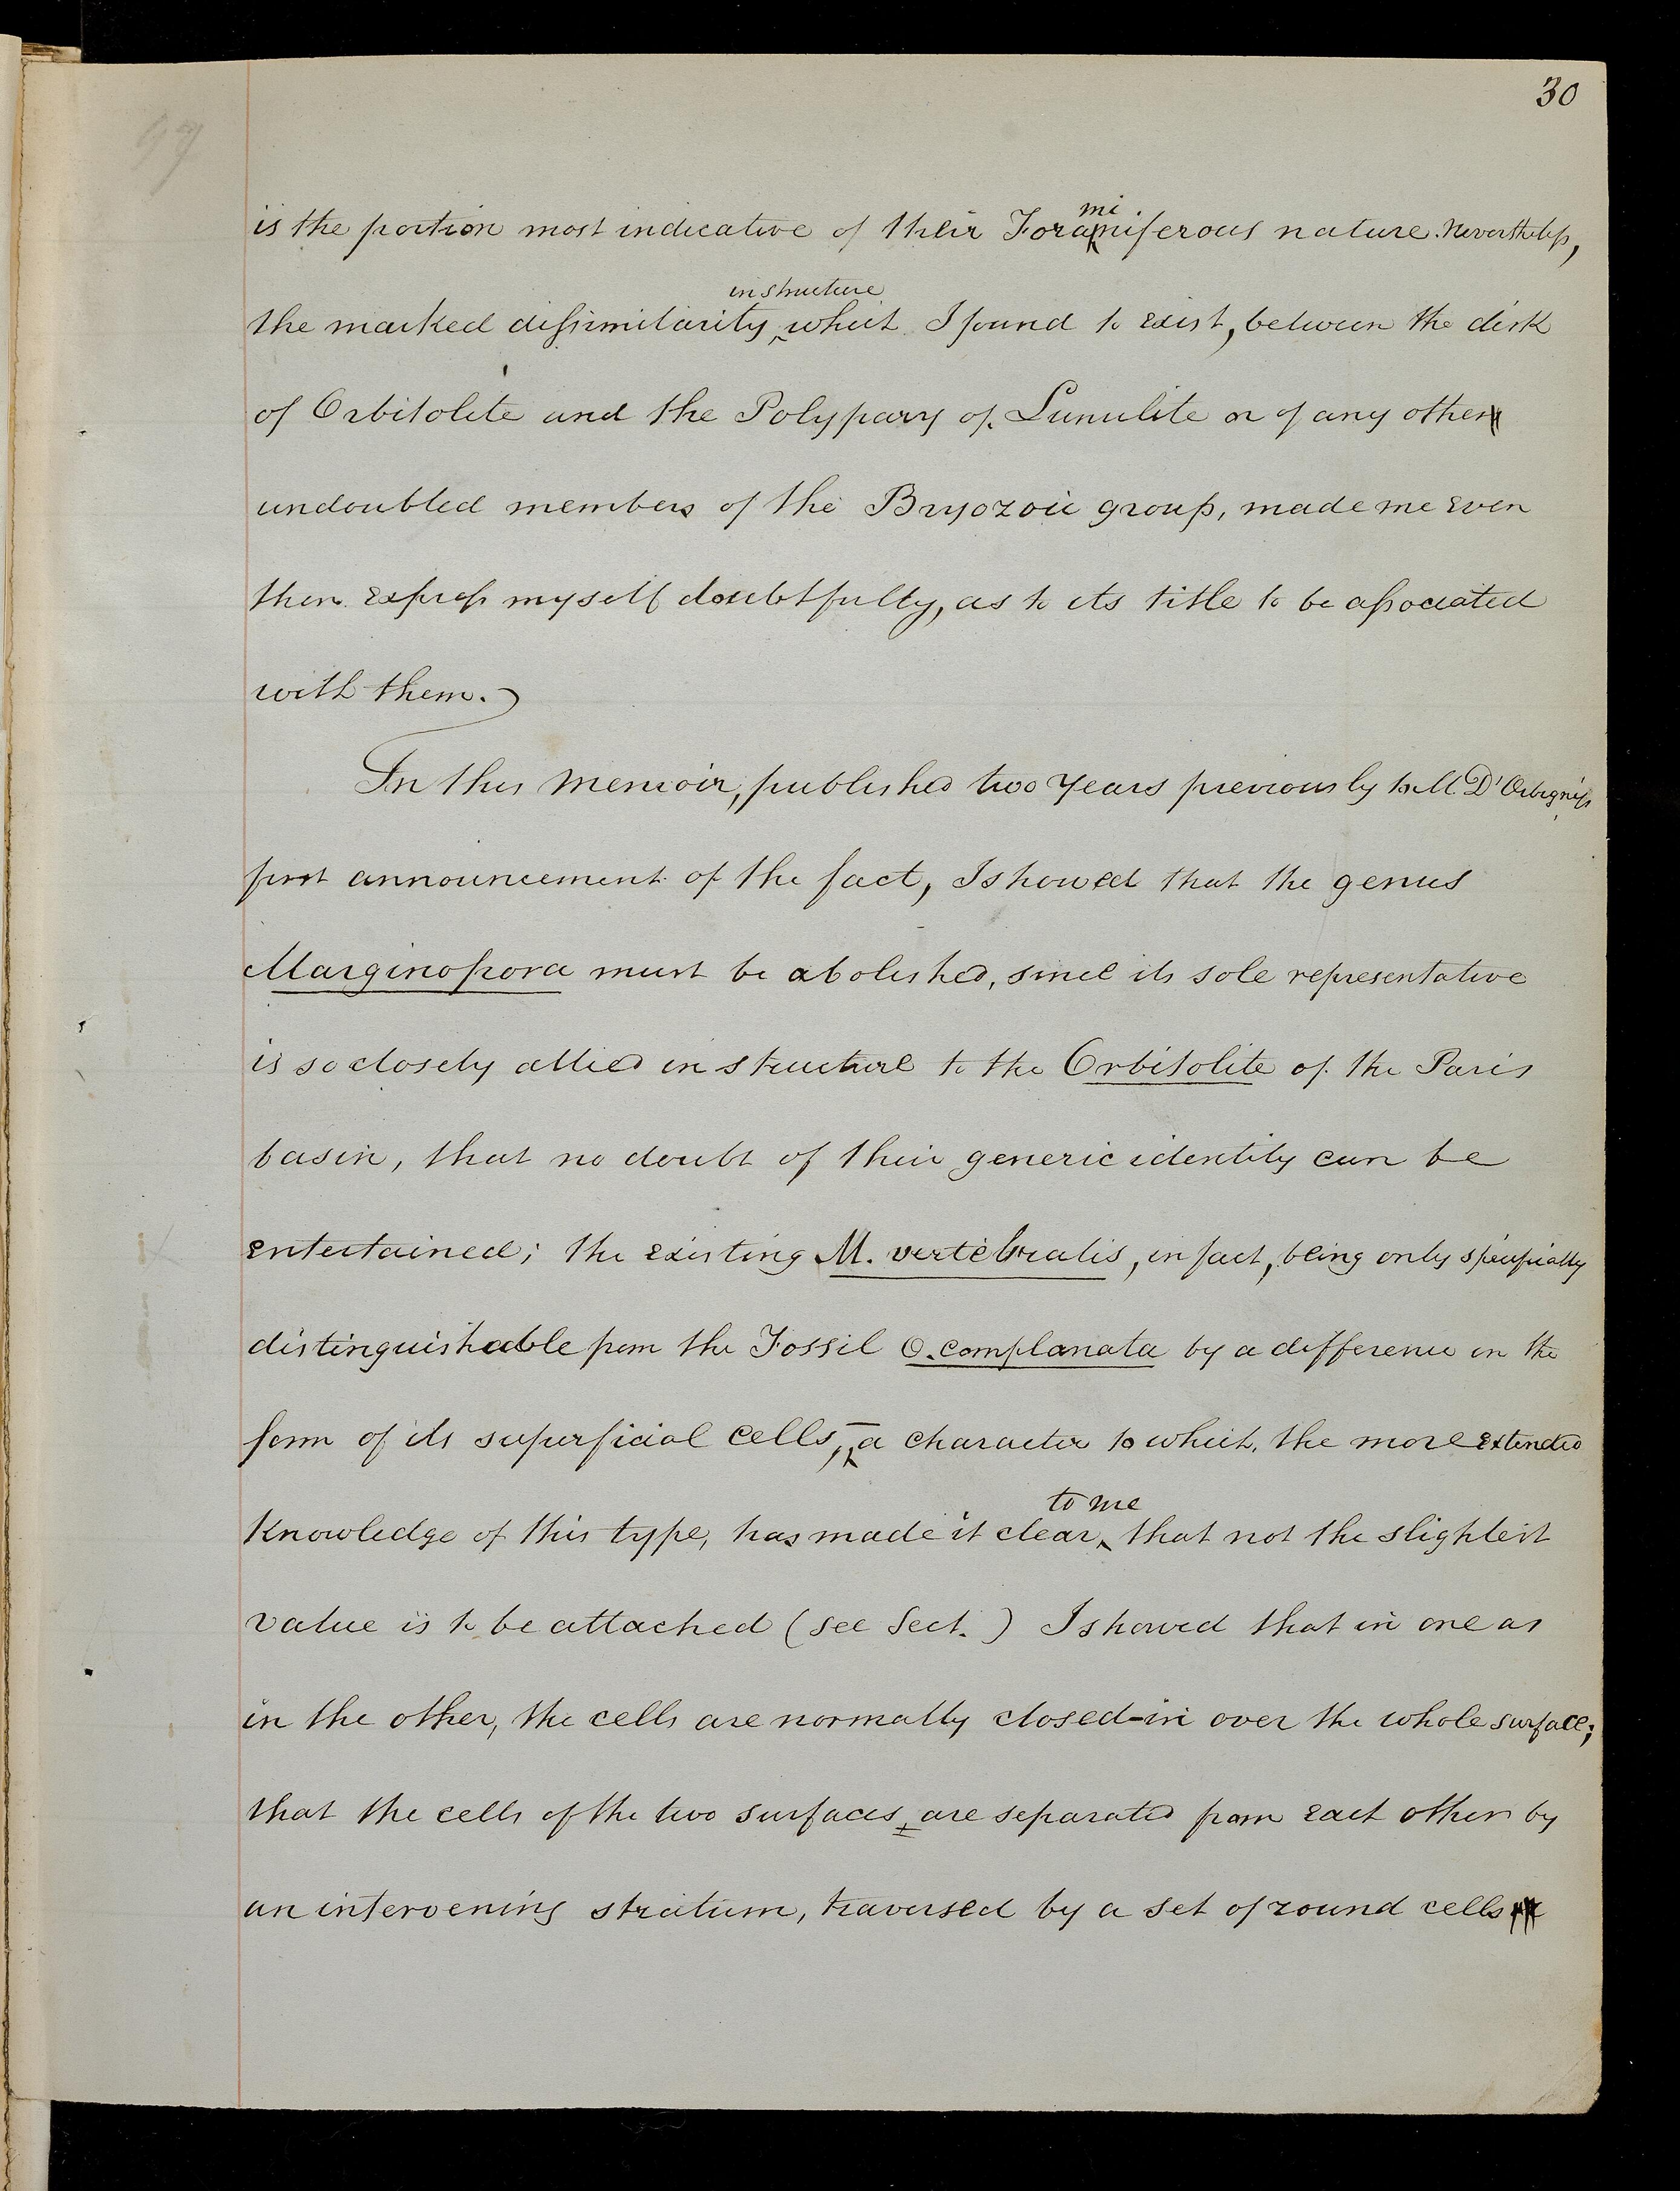 30
97
is the portion most indicative of their Foraminiferous nature. Nevertheless,
the marked dissimilarity in structure which I found to exist, between the disk
of Orbitolite and the Polypary of Lunulite or of any other
undoubted members of the Bryozoic group, made me even
then express myself doubtfully, as to its title to be associated
with them.
In this Memoir, published two years previously to M. D'Orbigny's
first announcement of the fact, I showed that the genus
Marginopora must be abolished, since its sole representative
is so closely allied in structure to the Orbitolite of the Paris
basin, that no doubt of their generic identity can be
entertained; the existing M. vertebralis, in fact, being only specifically
distinguishable from the Fossil O. complanata by a difference in the
form of its superficial cells, – a character to which, the more extended
Knowledge of this type, has made it clear to me that not the slightest
value is to be attached (see Sect. ) I showed that in one as
in the other, the cells are normally closed-in over the whole surface;
that the cells of the two surfaces, are separated from each other by
an intervening stratum, traversed by a set of round cells